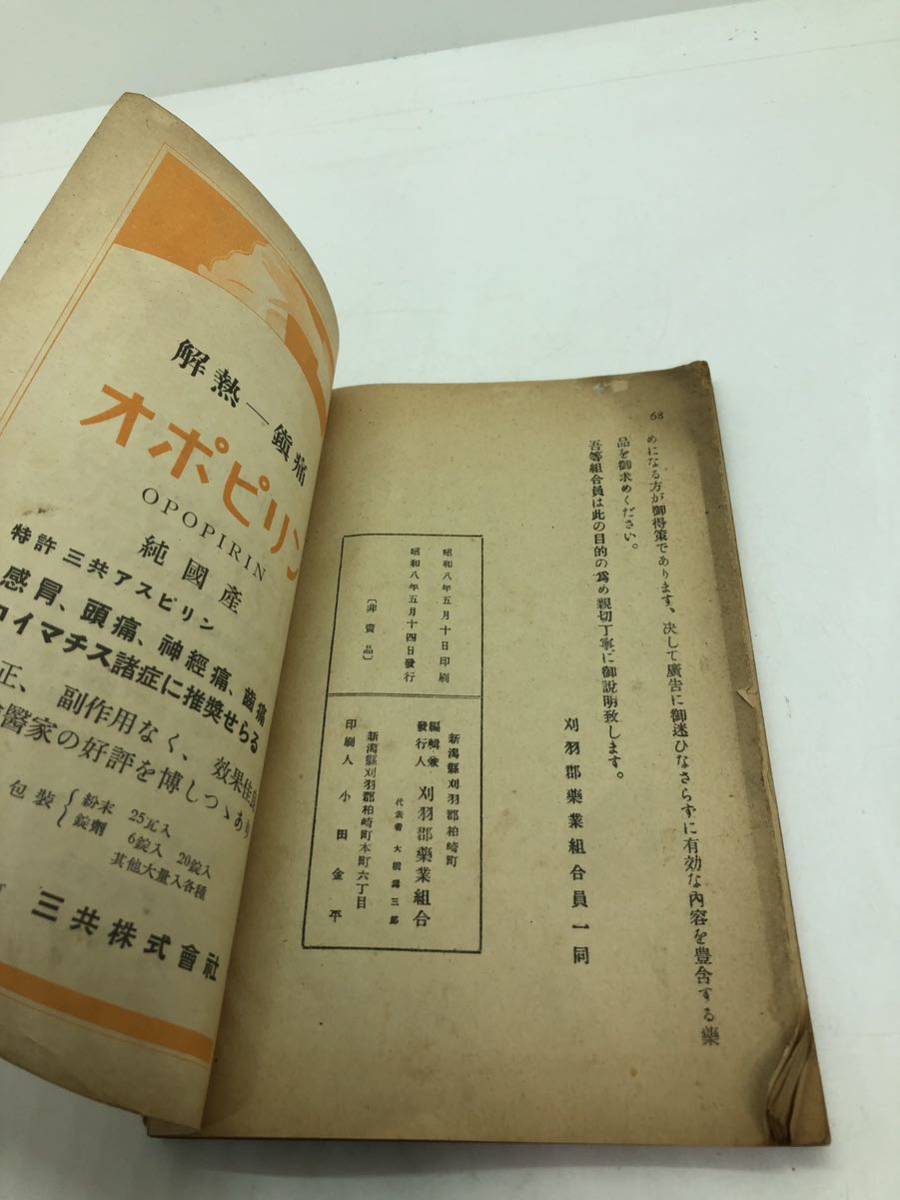 68
めになる方が御得策であります、決して廣告に御迷ひなさらずに有効な內容を豊含する藥
品を御求めください。
吾等組合員は此の目的の爲め親切丁寧に御說明致します。
刈羽郡藥業組合員一同
昭和八年五月十日印刷
昭和八年五月十四日發行
〔非賣品〕
新潟縣刈羽郡柏崎町
編輯兼
發行人 刈羽郡藥業組合
代表者 大 三郎
新潟縣刈羽郡柏崎町本町六丁目
印刷人 小田金平
解熱—鎭痛
オポピリン
OPOPIRIN
純國產
特許 三共アスピリン
感冒、頭痛、神經痛、齒痛
ロイマチス諸症に推奬せらる
正、副作用なく、效果佳良
醫家の好評を博しつゝあり
包裝 粉末 25瓦入
錠劑 6錠入 20錠入
其他大量入各種
三共株式會社